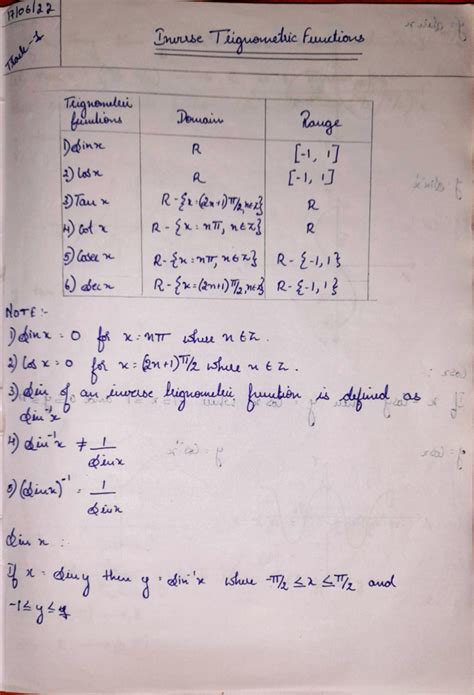 17/06/22
Inverse Trignometric Functions
Trignometric functions | Domain | Range
1) Sinx | R | [-1, 1]
2) Cosx | R | [-1, 1]
3) Tan x | R - {x = (2n+1)π/2, n∈Z} | R
4) Cot x | R - {x = nπ, n∈Z} | R
5) Cosec x | R - {x = nπ, n∈Z} | R - {-1, 1}
6) Sec x | R - {x = (2n+1)π/2, n∈Z} | R - {-1, 1}
NOTE :-
1) Sinx = 0 for x = nπ where n∈Z.
2) Cos x = 0 for x = (2n+1)π/2 where n∈Z.
3) Sin of an inverse trignometric function is defined as
Sin⁻¹x
4) Sin⁻¹x ≠ 1/Sinx
5) (Sinx)⁻¹ = 1/Sinx
Sin x :
If x = Sin y then y = Sin⁻¹x where -π/2 ≤ x ≤ π/2 and
-1 ≤ y ≤ y